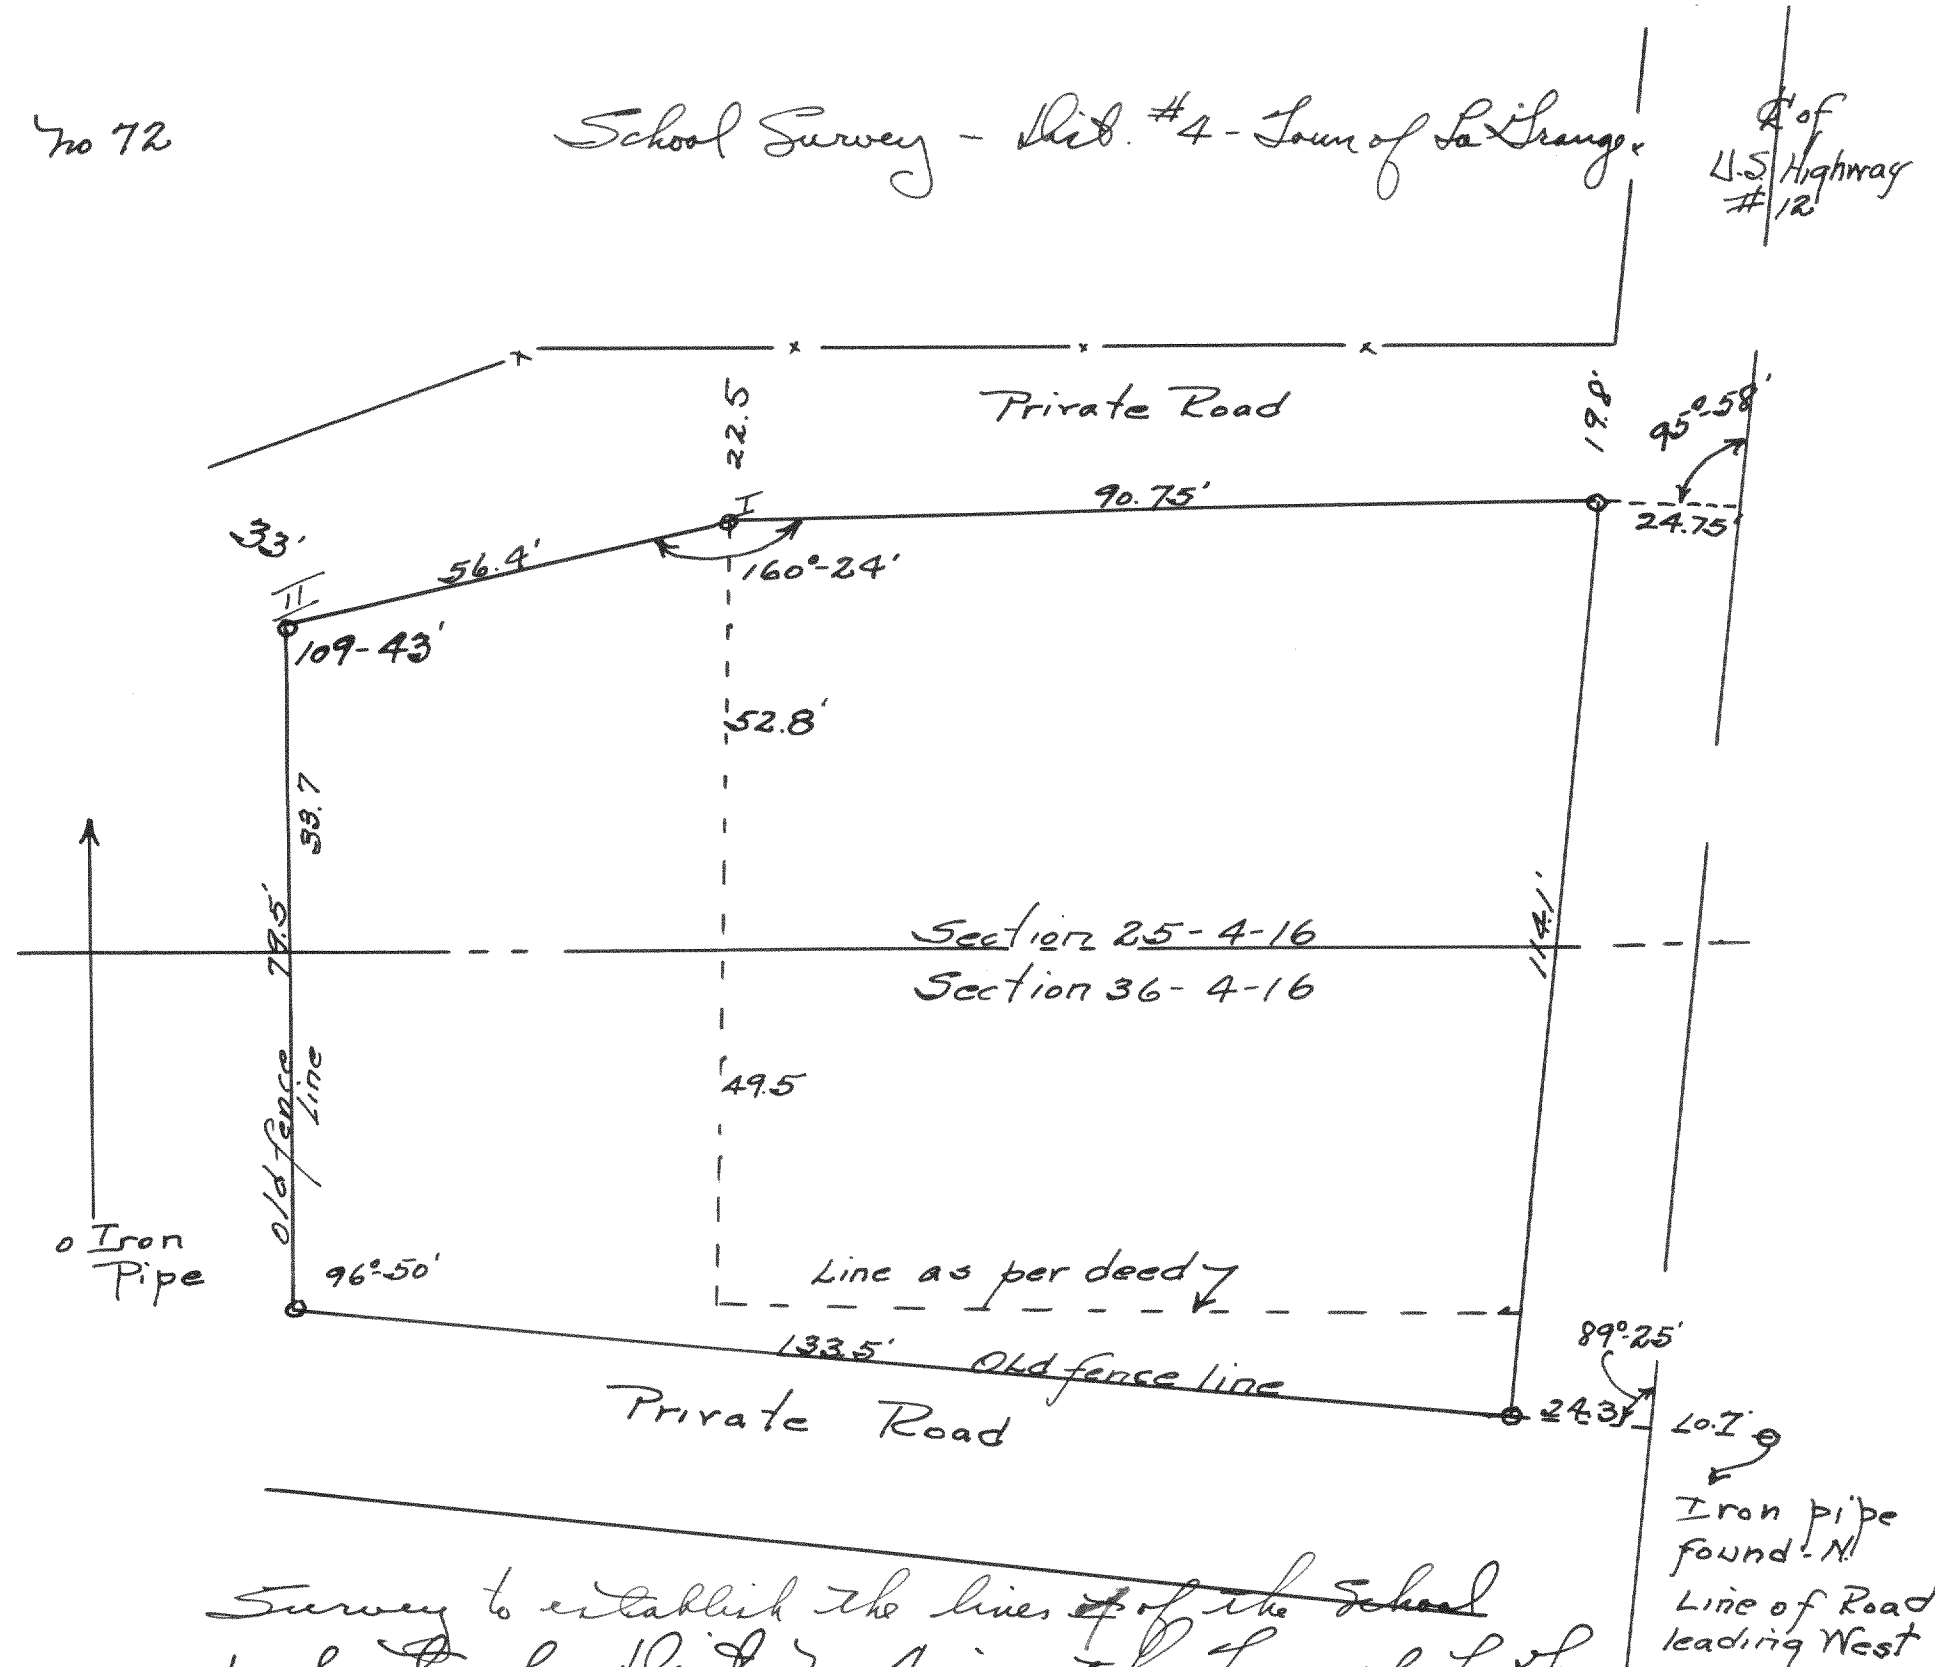 No 72
School Survey - Dist. #4 - Town of La Grange.
℄ of
U.S. Highway
# 12
Private Road
22.5
19.8'
95°-58'
I
90.75'
24.75'
33'
56.4'
160°-24'
II
109-43'
52.8'
33.7
79.5'
Section 25-4-16
114.1'
Section 36-4-16
Old fence
Line
49.5
o Iron
Pipe
96°-50'
Line as per deed
89°-25'
133.5'
Old fence line
24.3
Private Road
Iron pipe
found - N.
Line of Road
leading West
Survey to establish the lines of the School